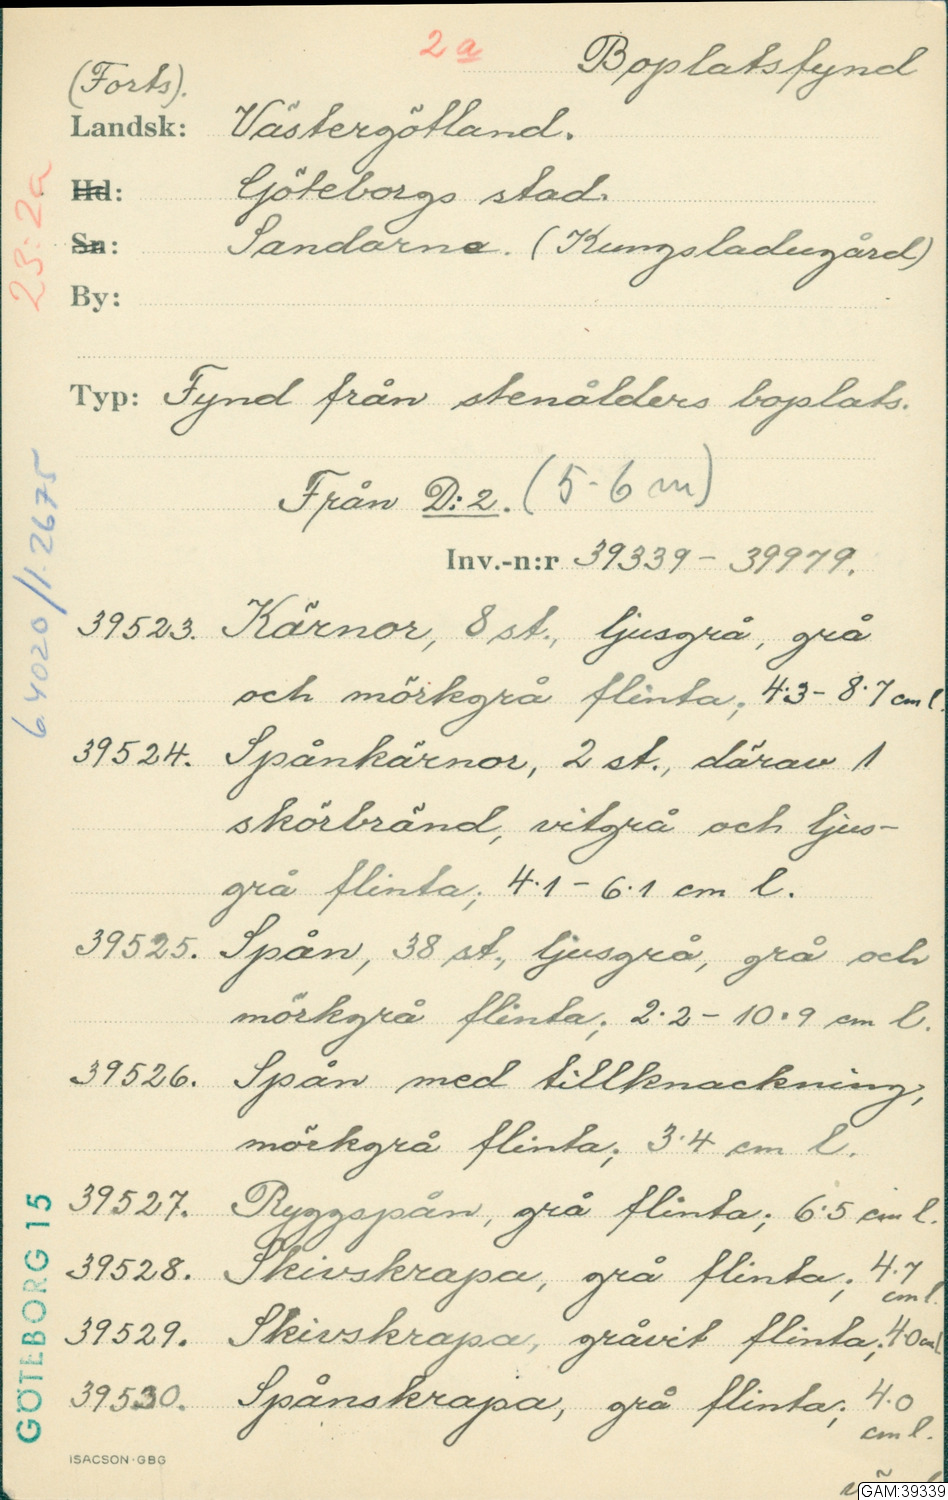 2a Boplatsfynd
(Forts).
Landsk: Västergötland.
Hd: Göteborgs stad.
Sn: Sandarna. (Kungsladugård)
By:
Typ: Fynd från stenålders boplats.
Från D:2. (5-6 m)
Inv.-n:r 39339 - 39979.
39523. Kärnor, 8 st., ljusgrå, grå
och mörkgrå flinta; 4.3 - 8.7 cm l.
39524. Spånkärnor, 2 st., därav 1
skörbränd, vitgrå och ljus-
grå flinta; 4.1 - 6.1 cm l.
39525. Spån, 38 st., ljusgrå, grå och
mörkgrå flinta; 2.2 - 10.9 cm l.
39526. Spån med tillknackning;
mörkgrå flinta; 3.4 cm l.
39527. Ryggspån, grå flinta; 6.5 cm l.
39528. Skivskrapa, grå flinta; 4.7
cm l.
39529. Skivskrapa, gråvit flinta; 4.0 cm l
39530. Spånskrapa, grå flinta; 4.0
cm l.
ISACSON·GBG
GAM:39339
23:2a
64020/1-2675
GÖTEBORG 15